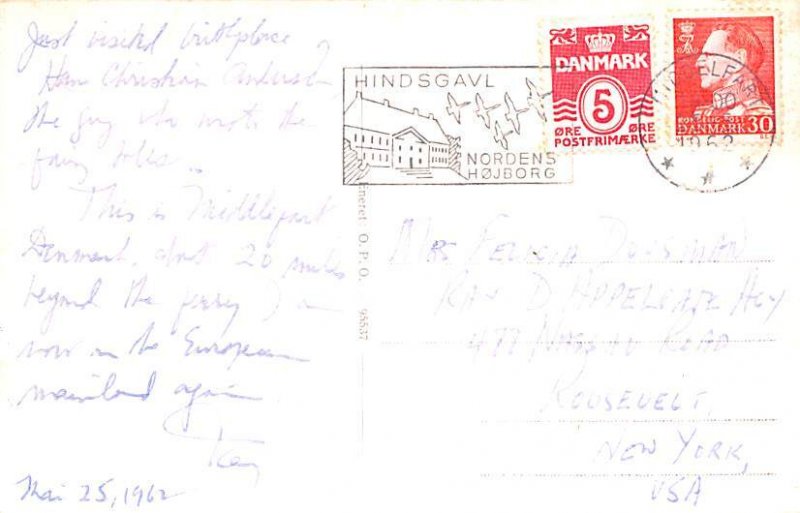 Just visited birthplace
Han Christian Andersen,
the guy who wrote the
fairy tales.
This is Middlefart
Denmark, about 20 miles
beyond the ferry. I am
now on the European
mainland again.
Kay
Mai 25, 1962
HINDSGAVL
NORDENS
HØJBORG
DANMARK
5
ØRE ØRE
POSTFRIMÆRKE
KONGELIG POST
DANMARK 30
MIDDELFART
1962
Eneret: O. P. O. 95537
MRS FELICIA
KAY D APPLEGATE AGY
477 NASSAU ROAD
ROOSEVELT,
NEW YORK,
USA